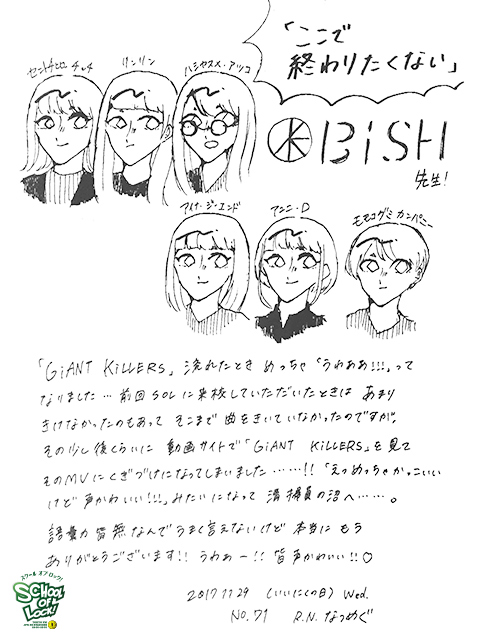 「ここで
終わりたくない」
セントチヒロ チッチ
リンリン
ハシヤスメ・アツコ
BiSH
先生!
アイナ・ジ・エンド
アユニ・D
モモコグミカンパニー
「GiANT KiLLERS」流れたとき めっちゃ「うわああ!!!」って
なりました… 前回SOLに来校していただいたときは あまり
きけなかったのもあって そこまで曲をきいていなかったのですが、
その少し後くらいに 動画サイトで「GiANT KiLLERS」を見て
そのMVにくぎづけになってしまいました……!!「えっめっちゃかっこいい
けど声かわいい!!!」みたいになって 清掃員の沼へ……。
語彙力皆無なんでうまく言えないけど 本当に もう
ありがとうございます!! うわぁー!! 皆声かわいい!!♡
2017.11.29 (いいにくの日) Wed.
No.71 R.N. なつめぐ
スクール オブ ロック!
SCHOOL
OF
LOCK!